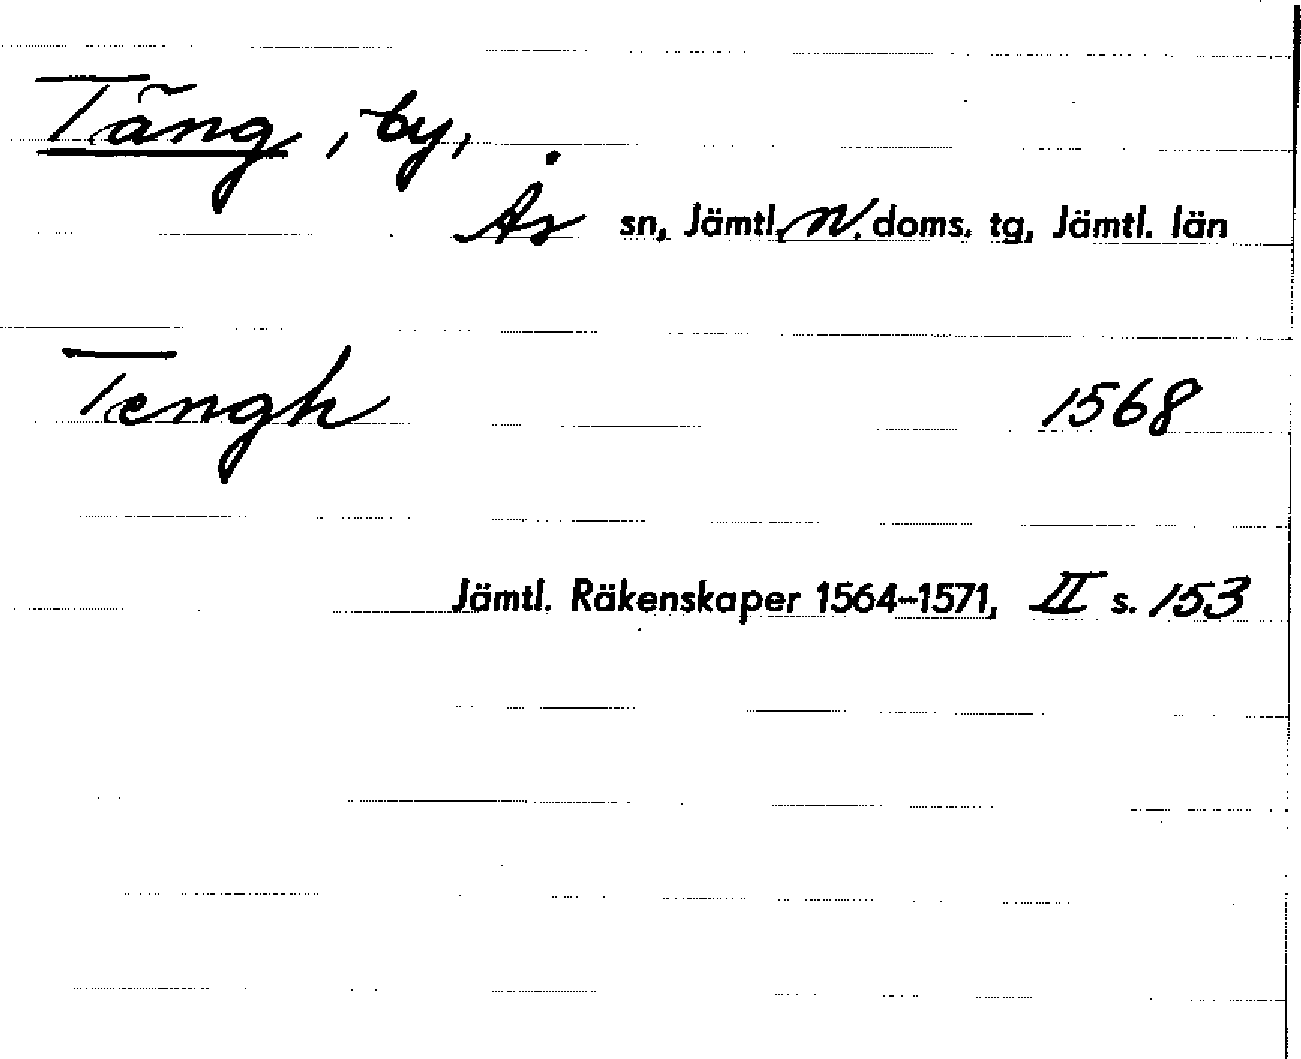 Täng, by,
Ås sn, Jämtl. N. doms. tg, Jämtl. län
Tengh 1568
Jämtl. Räkenskaper 1564-1571, II s. 153